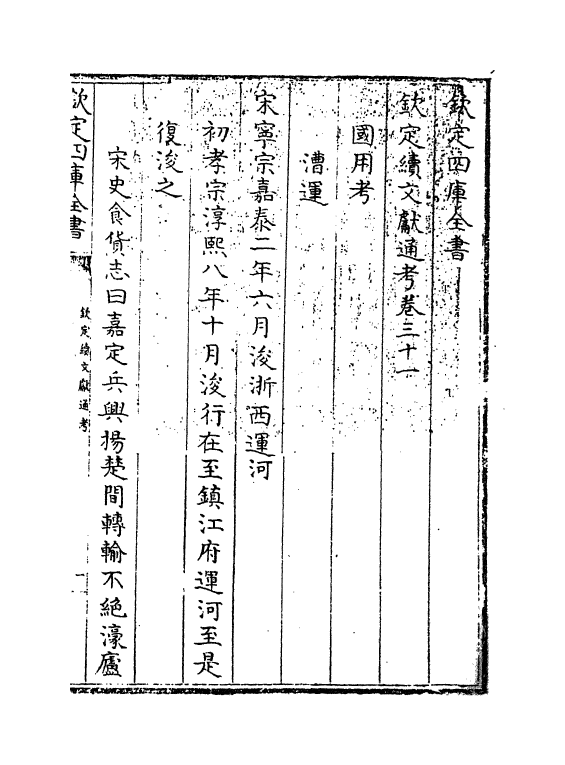 欽定四庫全書
欽定續文獻通考卷三十一
國用考
漕運
宋寧宗嘉泰二年六月浚浙西運河
初孝宗淳熙八年十月浚行在至鎮江府運河至是
復浚之
宋史食貨志曰嘉定兵興揚楚間轉輸不絶濠廬
欽定四庫全書
欽定續文獻通考
一